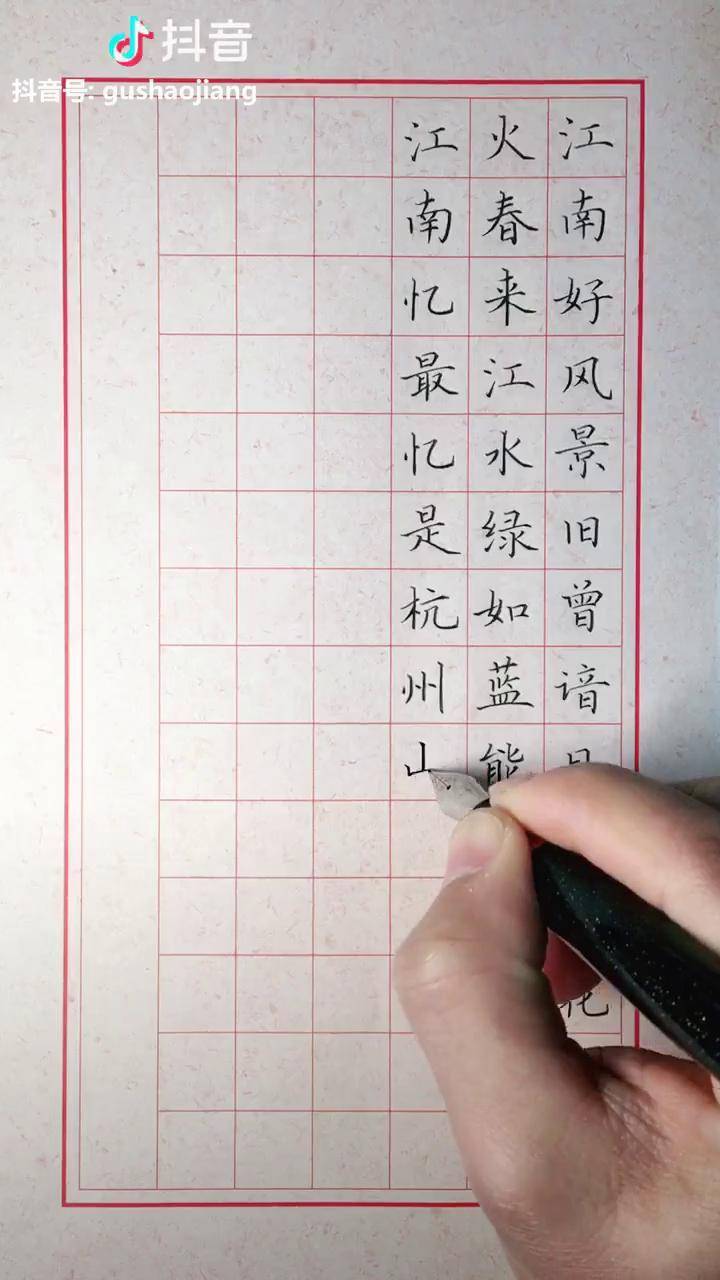 抖音
抖音号: gushaojiang
江南好风景旧曾谙日花
火春来江水绿如蓝能
江南忆最忆是杭州山